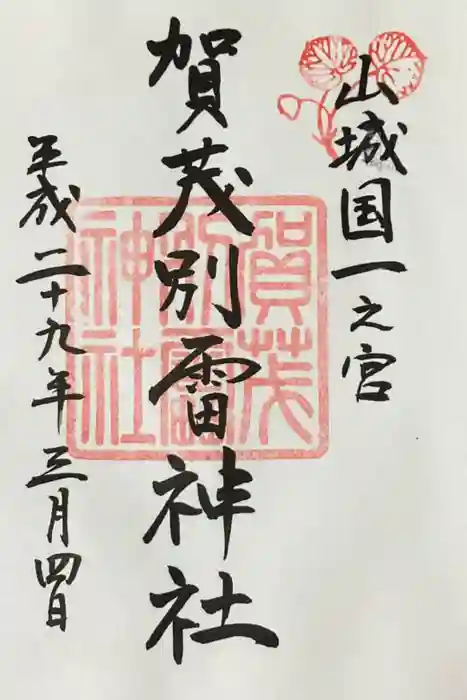 山城国一之宮
賀茂別雷神社
平成二十九年三月四日
賀茂
別雷
神社